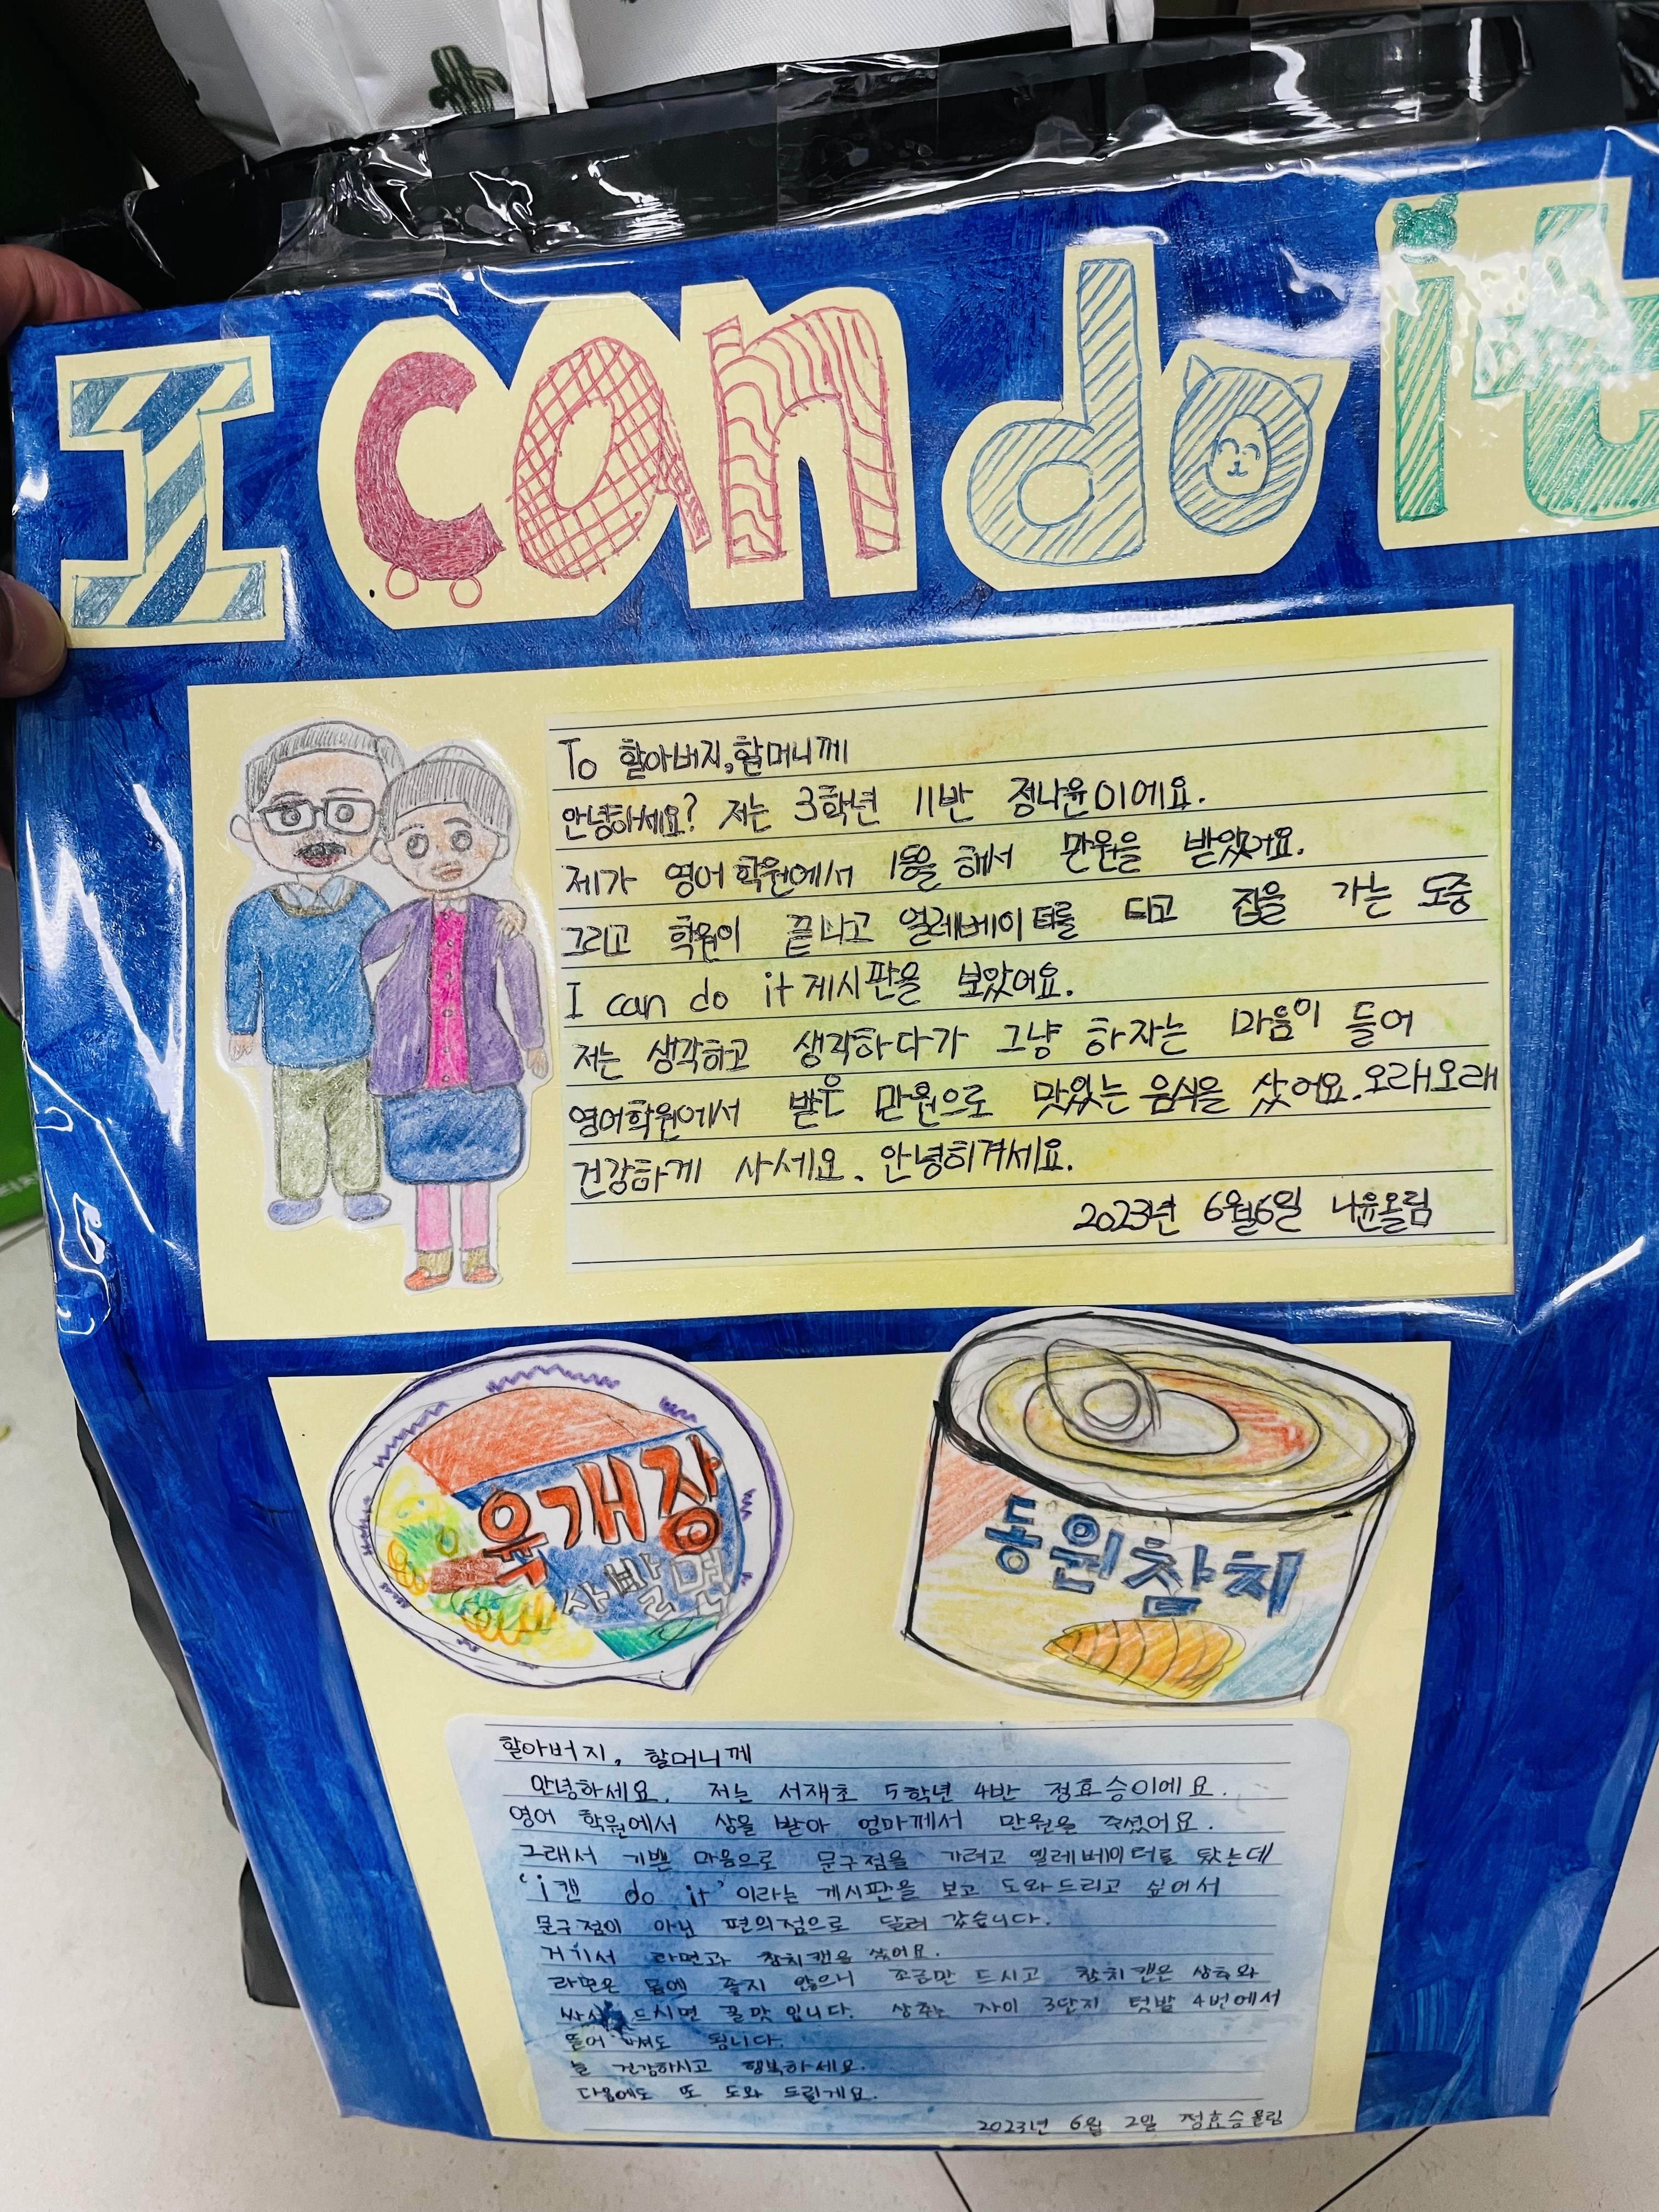 I can do it
To 할아버지,할머니께
안녕하세요? 저는 3학년 11반 정나윤이에요.
제가 영어학원에서 1등을 해서 만원을 받았어요.
그리고 학원이 끝나고 엘레베이터를 타고 집을 가는 도중
I can do it 게시판을 보았어요.
저는 생각하고 생각하다가 그냥 하자는 마음이 들어
영어학원에서 받은 만원으로 맛있는 음식을 샀어요.오래오래
건강하게 사세요. 안녕히계세요.
2023년 6월6일 나윤올림
육개장
사발면
동원참치
할아버지, 할머니께
안녕하세요. 저는 서재초 5학년 4반 정효승이에요.
영어 학원에서 상을 받아 엄마께서 만원을 주셨어요.
그래서 기쁜 마음으로 문구점을 가려고 엘레베이터를 탔는데
'i캔 do it'이라는 게시판을 보고 도와드리고 싶어서
문구점이 아닌 편의점으로 달려 갔습니다.
거기서 라면과 참치캔을 샀어요.
라면은 몸에 좋지 않으니 조금만 드시고 참치캔은 상추와
드시면 꿀맛입니다. 상추는 자이 3단지 텃밭 4번에서
뜯어 도 됩니다.
늘 건강하시고 행복하세요.
다음에도 또 도와 드릴게요.
2023년 6월 2일 정효승올림